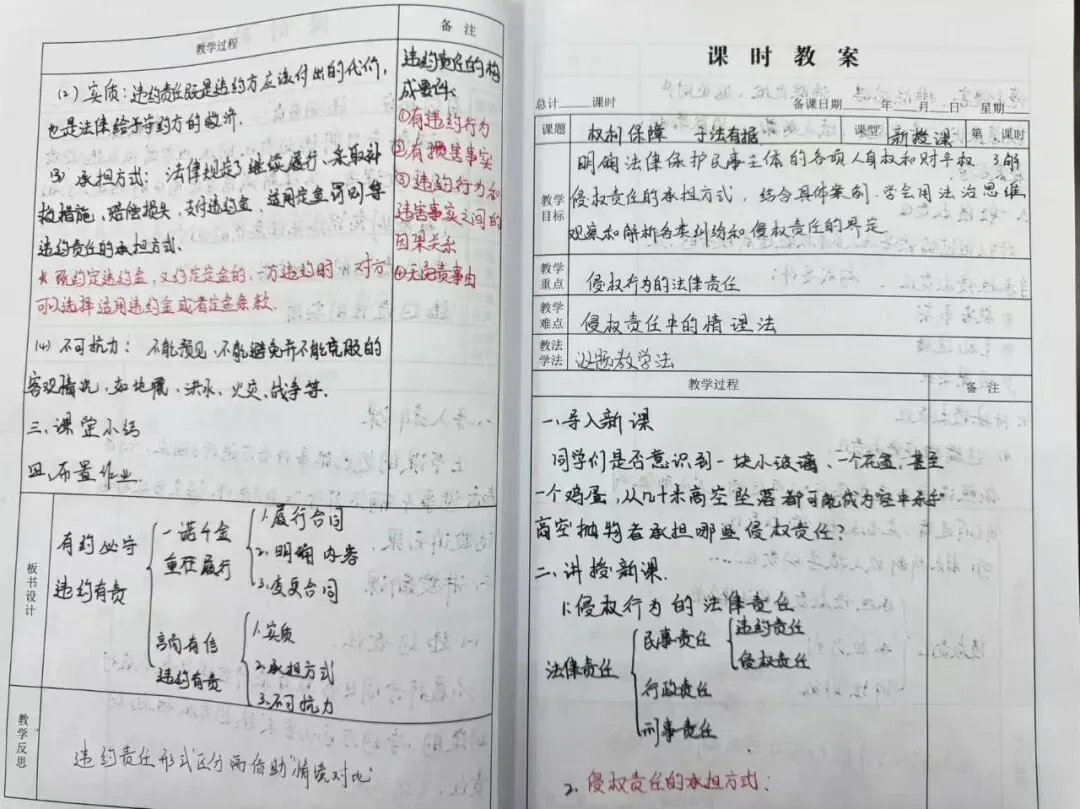 教学过程
备 注
(2) 实质：违约责任既是违约方应该付出的代价，
也是法律给予守约方的救济.
(3) 承担方式：法律规定了继续履行、采取补
救措施、赔偿损失、支付违约金 适用定金罚则等
违约责任的承担方式.
* 既约定违约金，又约定定金的，一方违约时，对方
可以选择适用违约金或者定金条款.
(4) 不可抗力：不能预见、不能避免并不能克服的
客观情况，如地震、洪水、火灾、战争等.
三、课堂小结
四、布置作业
违约责任的构
成要件:
①有违约行为
②有损害事实
③违约行为和
违害事实之间的
因果关系
④无免责事由
板书设计
有约必守
违约有责
一诺千金
重在履行
1.履行合同
2.明确内容
3.变更合同
言而有信
违约有责
1.实质
2.承担方式
3.不可抗力
教学反思
违约责任形式区分需借助"情境对比"
课 时 教 案
总计 课时
备课日期 年 月 日 星期
课题
权利保障 于法有据
课型
新授课
第 课时
教学目标
明确法律保护民事主体的各项人身权和财产权，了解
侵权责任的承担方式，结合具体案例，学会用法治思维
观察和解析各类纠纷和侵权责任的界定
教学重点
侵权行为的法律责任
教学难点
侵权责任中的情理法
教法学法
议题教学法
教学过程
备 注
一、导入新课
同学们是否意识到一块小玻璃、一个花盆，甚至
一个鸡蛋，从几十米高空坠落都可能成为空中杀手
高空抛物者承担哪些侵权责任？
二、讲授新课.
1.侵权行为的法律责任
法律责任
民事责任
违约责任
侵权责任
行政责任
刑事责任
2. 侵权责任的承担方式：